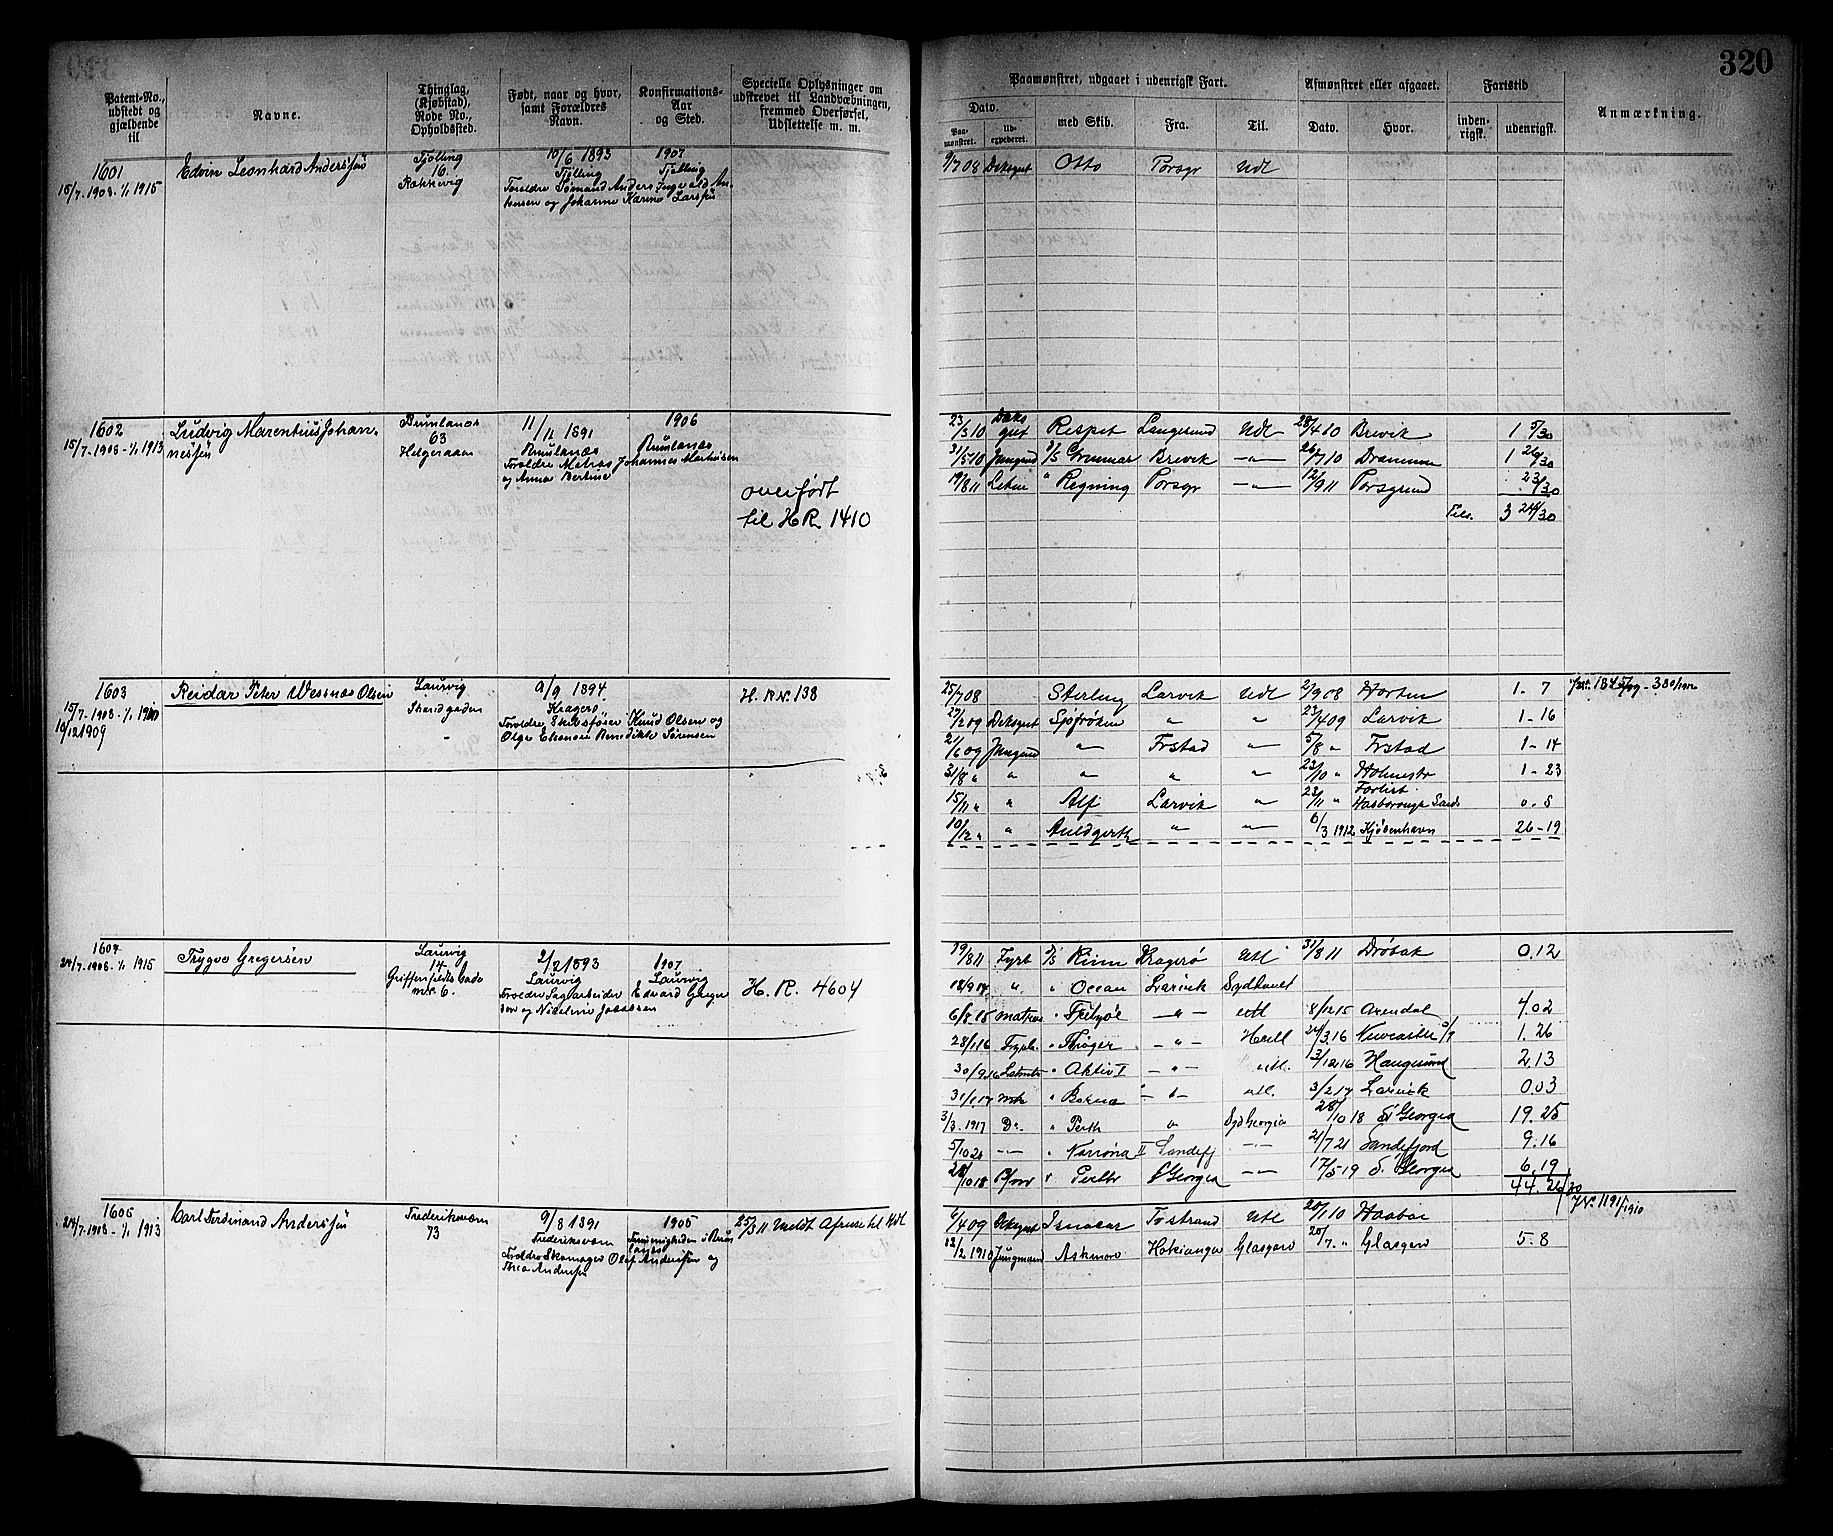 320
Patent-No., udstedt og gjældende til
Navne.
Thinglag, (Kjøbstad), Rode No., Opholdssted.
Født, naar og hvor, samt Forældres Navn.
Konfirmations-Aar og Sted.
Specielle Oplysninger om udskrevet til Landvæbningen, fremmed Overførsel, Udslettelse m. m.
Paamønstret, udgaaet i udenrigsk Fart.
Dato.
Paamønstret.
Udexpederet.
med Skib.
Fra.
Til.
Afmønstret eller afgaaet.
Dato.
Hvor.
Fartstid
indenrigsk.
udenrigsk.
Anmærkning.
1601
15/7-1908-1/1 1915
Edvin Leonhard Anderssen
Tjølling
16.
Rakkevig
10/6 1893
Tjølling
1907
Tjølling
Forældre Sømand Anders Ingvald An-
9/7 08 Deksgut Otto Porsgr Udl
1602
15/7-1908-1/1 1913
Ludvig Marentius Johan-
nessen
Brunlanæs
63
Helgeraaen
11/11 1891
Brunlanæs
1906
Brunlanæs
Forældre Matros Johannes Martinsen
og Anna Bertine
overført
til H.R. 1410
23/3 10 Deks gut Respit Langesund Udl 28/4 10 Brevik 1 5/30
31/5 10 Jungmd D/S Gunnar Brevik -"- 26/7 10 Drammen 1 26/30
19/8 11 Letm " Regning Porsgr -"- 12/9 11 Porsgrund 23/30
Tils. 3 24/30
1603
15/7-1908-1/1 1910
10/12 1909
Reidar Peter Wessnæs Olsen
Laurvig
Strandgaden
9/9 1894
Kragerø
Forældre Skibsfører Knud Olsen og
Olga Eleonore Benedikte Sørensen
H. R. No. 138
25/7 08 Sterling Larvik Udl 2/9 08 Horten 1- 7
27/2 09 Deksgut Sjøfrøken " " 23/4 09 Larvik 1-16
21/6 09 Jungmd -"- Frstad -"- 5/8 " Frstad 1-14
31/8 " " -"- " -"- 23/10 " Holmestr 1-23
15/11 " " Alf Larvik -"- 23/11 " Forlist. Hasborough Sands 0. 8
10/12 " " Auldgerth -"- -"- 6/3 1912 Kjøbenhavn 26-19
1604
24/7-1908-1/1 1915
Trygve Gregersen
Laurvig
14
Griffenfeldts Gade
nr. 6.
2/2 1893
Laurvig
1907
Laurvig
Forældre Sagarbeider Edvard Greger
sen og Nikoline Jacobsen
H. R. 4604
19/8 11 Fyrb D/S Rium Kragerø Utl 31/8 11 Drøbak 0.12
18/9 14 " " Ocean Larvik Sydhavet
6/8.15 matros " -"- utl 8/12 15 Arendal 4.02
28/1 16 Fyrb. " Thrøger -"- 24/3.16 Newcastle 1.26
30/9.16 " Aktiv I -"- utl. 13/12 16 Haugesund 2.13
31/1.17 mtr " -"- utl. 3/2 17 Larvik 0.03
3/3. 1917 Do. " Perth " Syd Georgia 28/10 18 S. Georgia 19.25
5/10 20 -"- " Norrøna II Sandefj -"- 2/7 21 Sandefjord 9.16
28/10 18 " Perth S Georgia -"- 17/5-19 S. Georgia 6.19
44.26/30
1605
24/7-1908-1/1 1913
Carl Ferdinand Anderssen
Frederiksværn
73
9/8 1891
Frederiksværn
1905
Frimenigheden i Brun
lanæs
Forældre Skomager Olaf Anderssen og
Thea Anderssen
6/4 09 Deksgut Tostrand Utl 20/1 10
12/2 1910 Jungmand Askmore Hokianga Glasgow 20/7. " Glasgow 5.8
JNr. 1191/1910